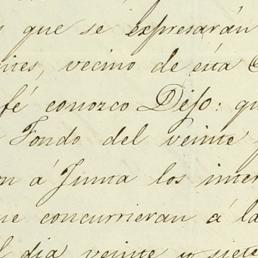 que se expresarán
vecino de esta
fé conozco Dijo:
Fondo del veinte
á Junta los
concurrieran á la
dia veinte y siete